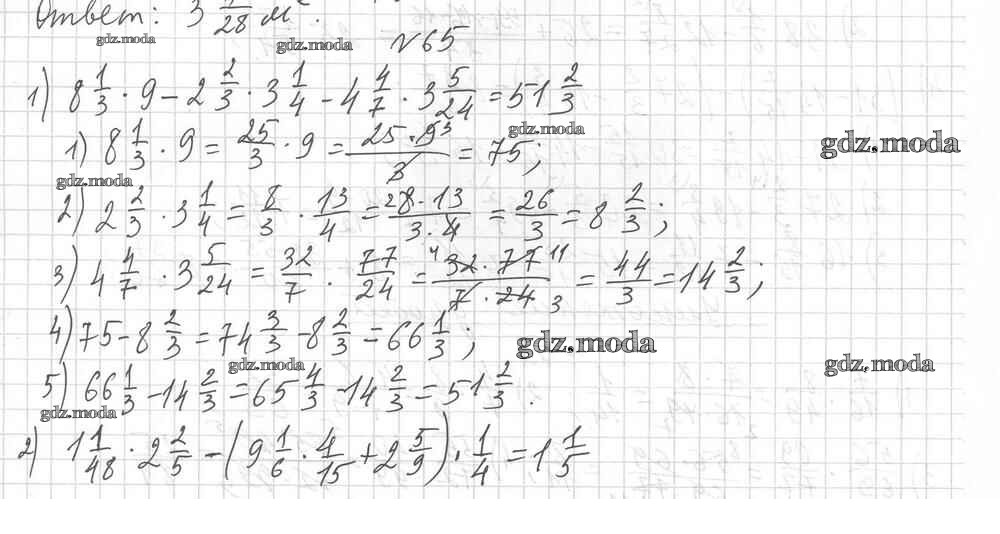 Ответ: 3 1/28 м².
gdz.moda
gdz.moda
№65
1) 8 1/3 · 9 − 2 2/3 · 3 1/4 − 4 4/7 · 3 5/24 = 51 2/3
gdz.moda
gdz.moda
1) 8 1/3 · 9 = 25/3 · 9 = 25 · 9 3/3 = 75;
gdz.moda
2) 2 2/3 · 3 1/4 = 8/3 · 13/4 = 2 8 · 13/3 · 4 = 26/3 = 8 2/3;
3) 4 4/7 · 3 5/24 = 32/7 · 77/24 = 4 32 · 77 11/7 · 24 3 = 44/3 = 14 2/3;
4) 75 − 8 2/3 = 74 3/3 − 8 2/3 = 66 1/3;
gdz.moda
gdz.moda
gdz.moda
5) 66 1/3 − 14 2/3 = 65 4/3 − 14 2/3 = 51 2/3.
gdz.moda
2) 1 1/48 · 2 2/5 − (9 1/6 · 4/15 + 2 5/9) · 1/4 = 1 1/5